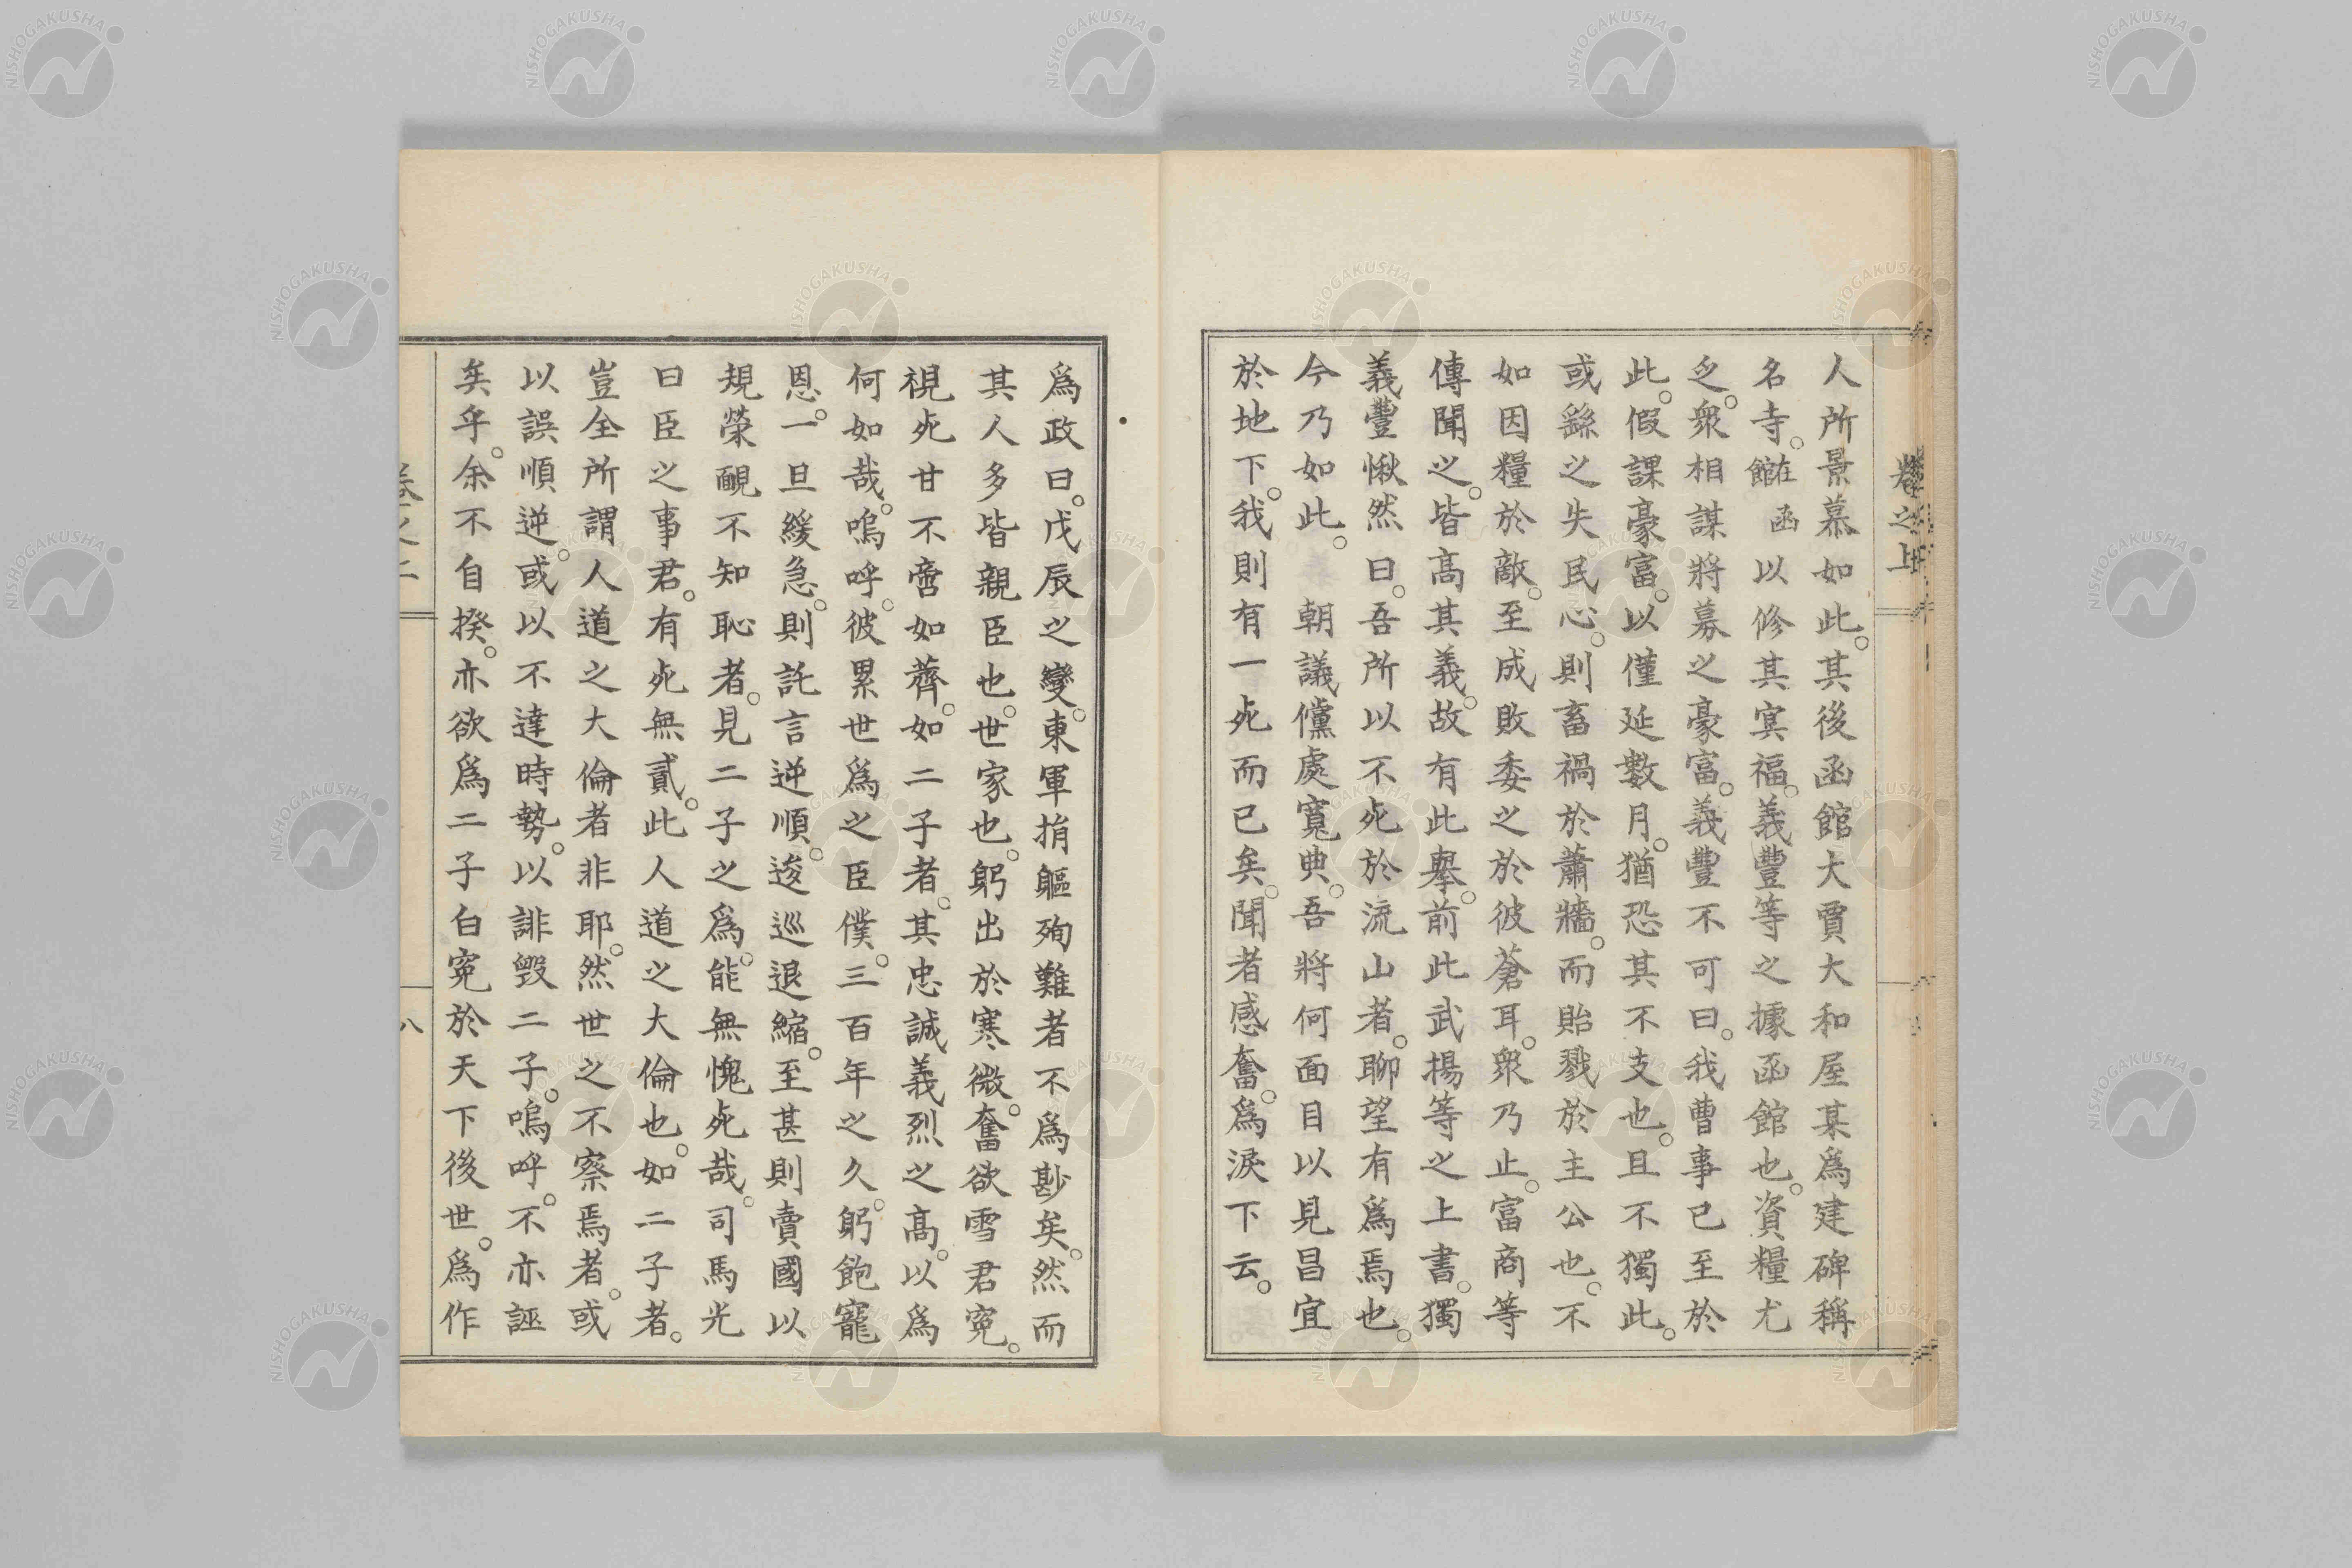 人所景慕如此。其後函館大賈大和屋某爲建碑稱
名寺。在函館以修其冥福。義豐等之據函館也。資糧尤
乏。衆相謀將募之豪富。義豐不可曰。我曹事已至於
此。假課豪富。以僅延數月。猶恐其不支也。且不獨此。
或繇之失民心。則畜禍於蕭牆。而貽戮於主公也。不
如因糧於敵。至成敗委之於彼蒼耳。衆乃止。富商等
傳聞之。皆高其義。故有此擧。前此武揚等之上書。獨
義豐愀然曰。吾所以不死於流山者。聊望有爲焉也。
今乃如此。朝議儻處寬典。吾將何面目以見昌宜
於地下。我則有一死而已矣。聞者感奮。爲淚下云。
爲政曰。戊辰之變。東軍捐軀殉難者不爲尠矣。然而
其人多皆親臣也。世家也。躬出於寒微。奮欲雪君冤。
視死甘不啻如薺。如二子者。其忠誠義烈之高。以爲
何如哉。嗚呼。彼累世爲之臣僕。三百年之久。躬飽寵
恩。一旦緩急。則託言逆順。逡巡退縮。至甚則賣國以
規榮靦不知恥者。見二子之爲。能無愧死哉。司馬光
曰臣之事君。有死無貳。此人道之大倫也。如二子者。
豈全所謂人道之大倫者非耶。然世之不察焉者。或
以誤順逆。或以不達時勢。以誹毀二子。嗚呼。不亦誣
矣乎。余不自揆。亦欲爲二子白冤於天下後世。爲作
卷之上
八
NISHOGAKUSHA